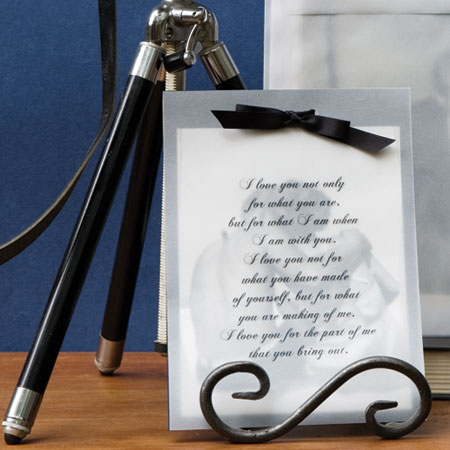 I love you not only
for what you are,
but for what I am when
I am with you.
I love you not for
what you have made
of yourself, but for what
you are making of me.
I love you for the part of me
that you bring out.